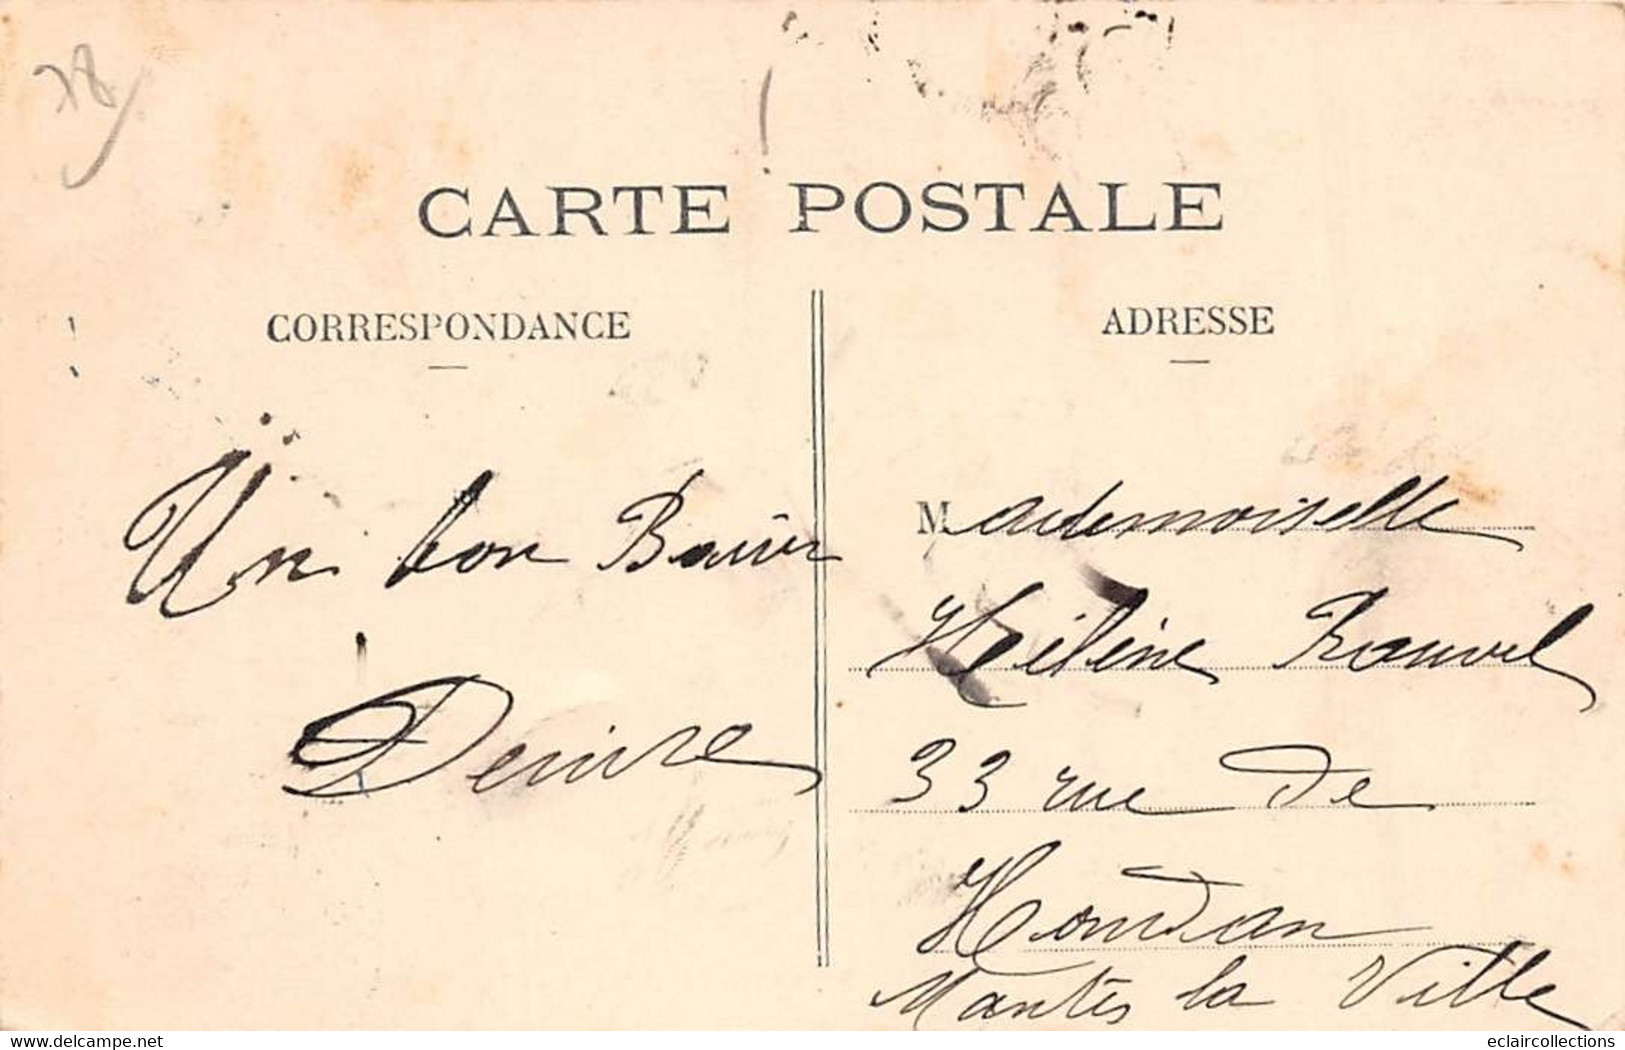 78
CARTE POSTALE
CORRESPONDANCE
Un bon Baiser
Denise
ADRESSE
Mademoiselle
Hélène Rouvel
33 rue de
Houdan
Mantes la Ville
www.delcampe.net
eclaircollections